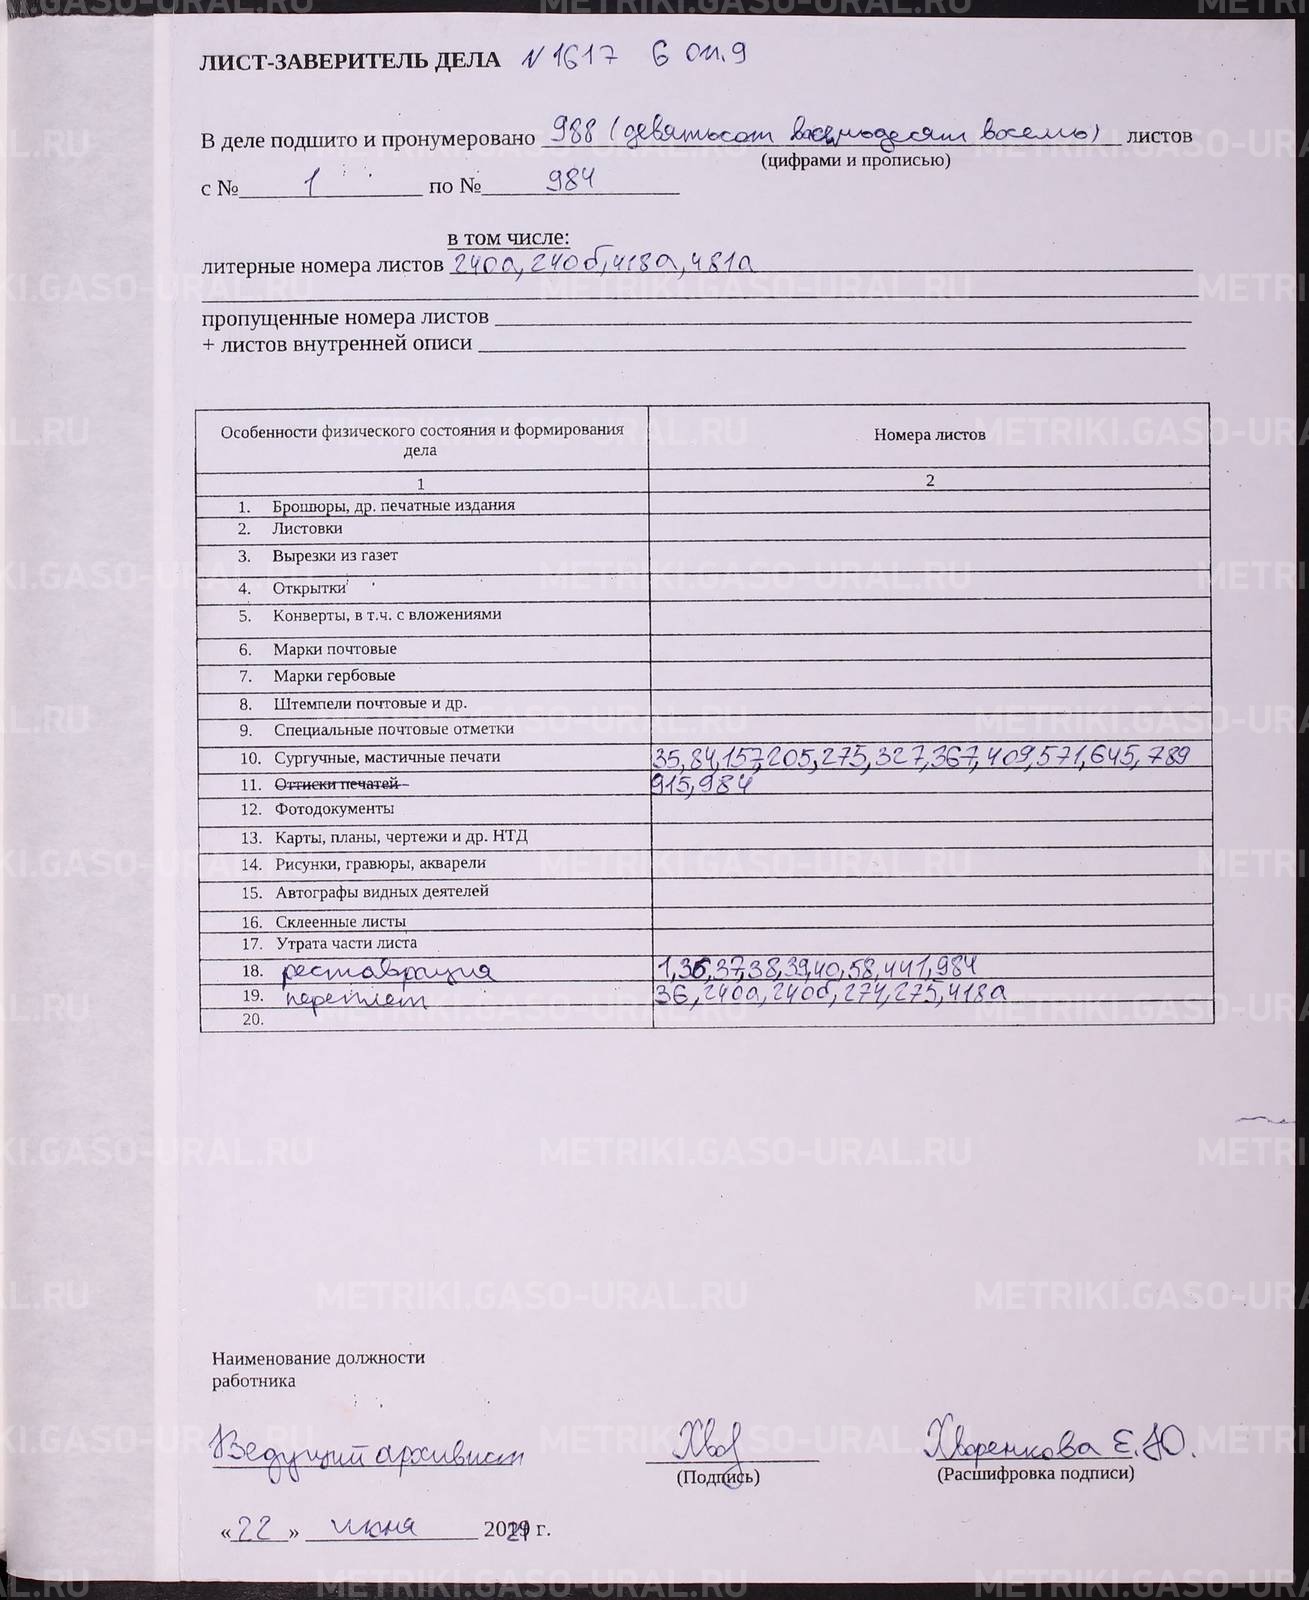 ЛИСТ-ЗАВЕРИТЕЛЬ ДЕЛА N 1617 6 оп.9
В деле подшито и пронумеровано 988 (девятьсот восемьдесят восемь) листов
(цифрами и прописью)
с № 1 по № 984
в том числе:
литерные номера листов 240а, 240б, 418а, 481а
пропущенные номера листов
+ листов внутренней описи
Особенности физического состояния и формирования дела Номера листов
1 2
1. Брошюры, др. печатные издания
2. Листовки
3. Вырезки из газет
4. Открытки
5. Конверты, в т.ч. с вложениями
6. Марки почтовые
7. Марки гербовые
8. Штемпели почтовые и др.
9. Специальные почтовые отметки
10. Сургучные, мастичные печати 35, 84, 157, 205, 275, 327, 367, 409, 571, 645, 789
11. Оттиски печатей 915, 984
12. Фотодокументы
13. Карты, планы, чертежи и др. НТД
14. Рисунки, гравюры, акварели
15. Автографы видных деятелей
16. Склеенные листы
17. Утрата части листа
18. реставрация 1, 36, 37, 38, 39, 40, 58, 441, 984
19. переплет 36, 240а, 240б, 274, 275, 418а
20.
Наименование должности
работника
Ведущий архивист Хво Хворенкова Е.Ю.
(Подпись) (Расшифровка подписи)
«22» июня 2021 г.
METRIKI.GASO-URAL.RU